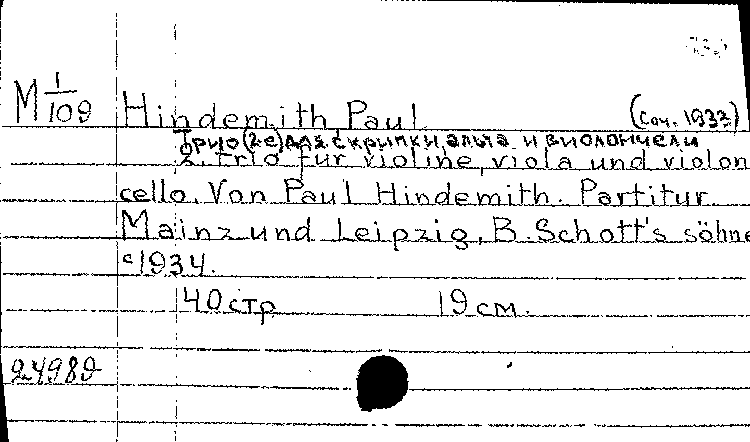 М 1/109 Hindemith Paul (Соч. 1933)
Трио (2-е) для скрипки, альта и виолончели
2. Trio für violine, viola und violon
cello. Von Paul Hindemith. Partitur.
Mainz und Leipzig, B. Schott's söhne
c1934.
40 стр 19 см.
24989